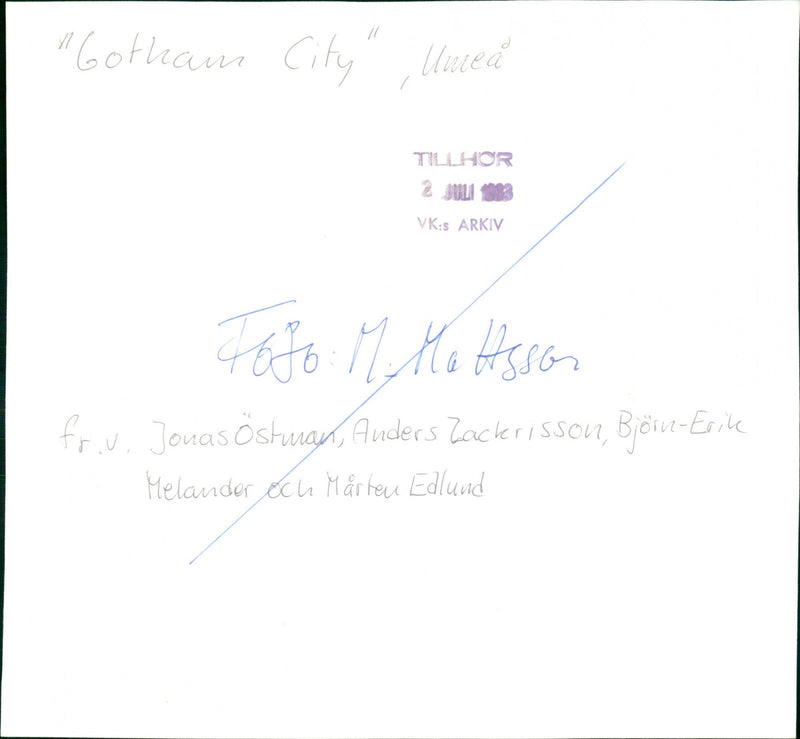 "Gotham City", Umeå
TILLHÖR
2 JULI 1983
VK:s ARKIV
Foto: M. Mattsson
fr.v. Jonas Östman, Anders Zackrisson, Björn-Erik
Melander och Mårten Edlund